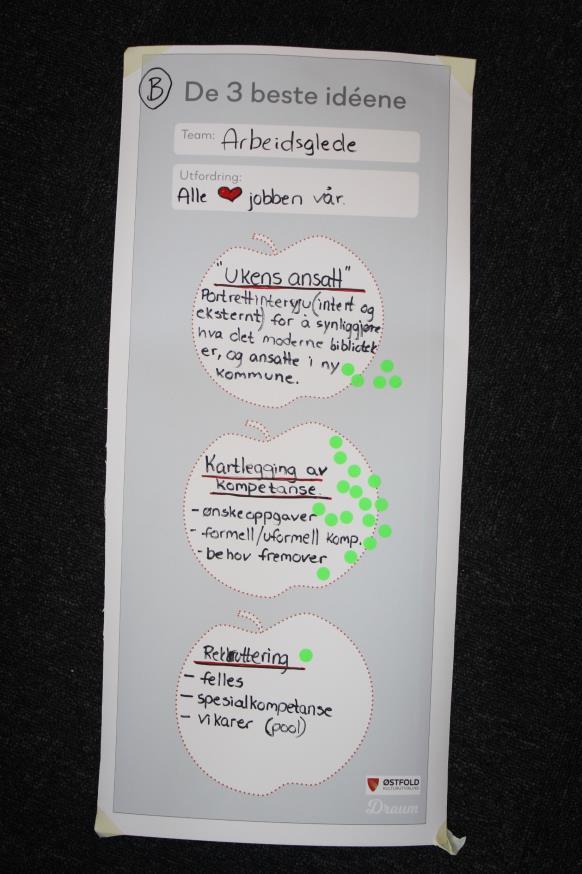 B De 3 beste idéene
Team: Arbeidsglede
Utfordring:
Alle ❤ jobben vår.
"Ukens ansatt"
Portrettintervju (internt og
eksternt) for å synliggjøre
hva det moderne bibliotek
er, og ansatte i ny
kommune.
Kartlegging av
kompetanse.
- ønskeoppgaver
- formell/uformell komp.
- behov fremover
Rekruttering
- felles
- spesialkompetanse
- vikarer (pool)
ØSTFOLD
KULTURUTVIKLING
Draum